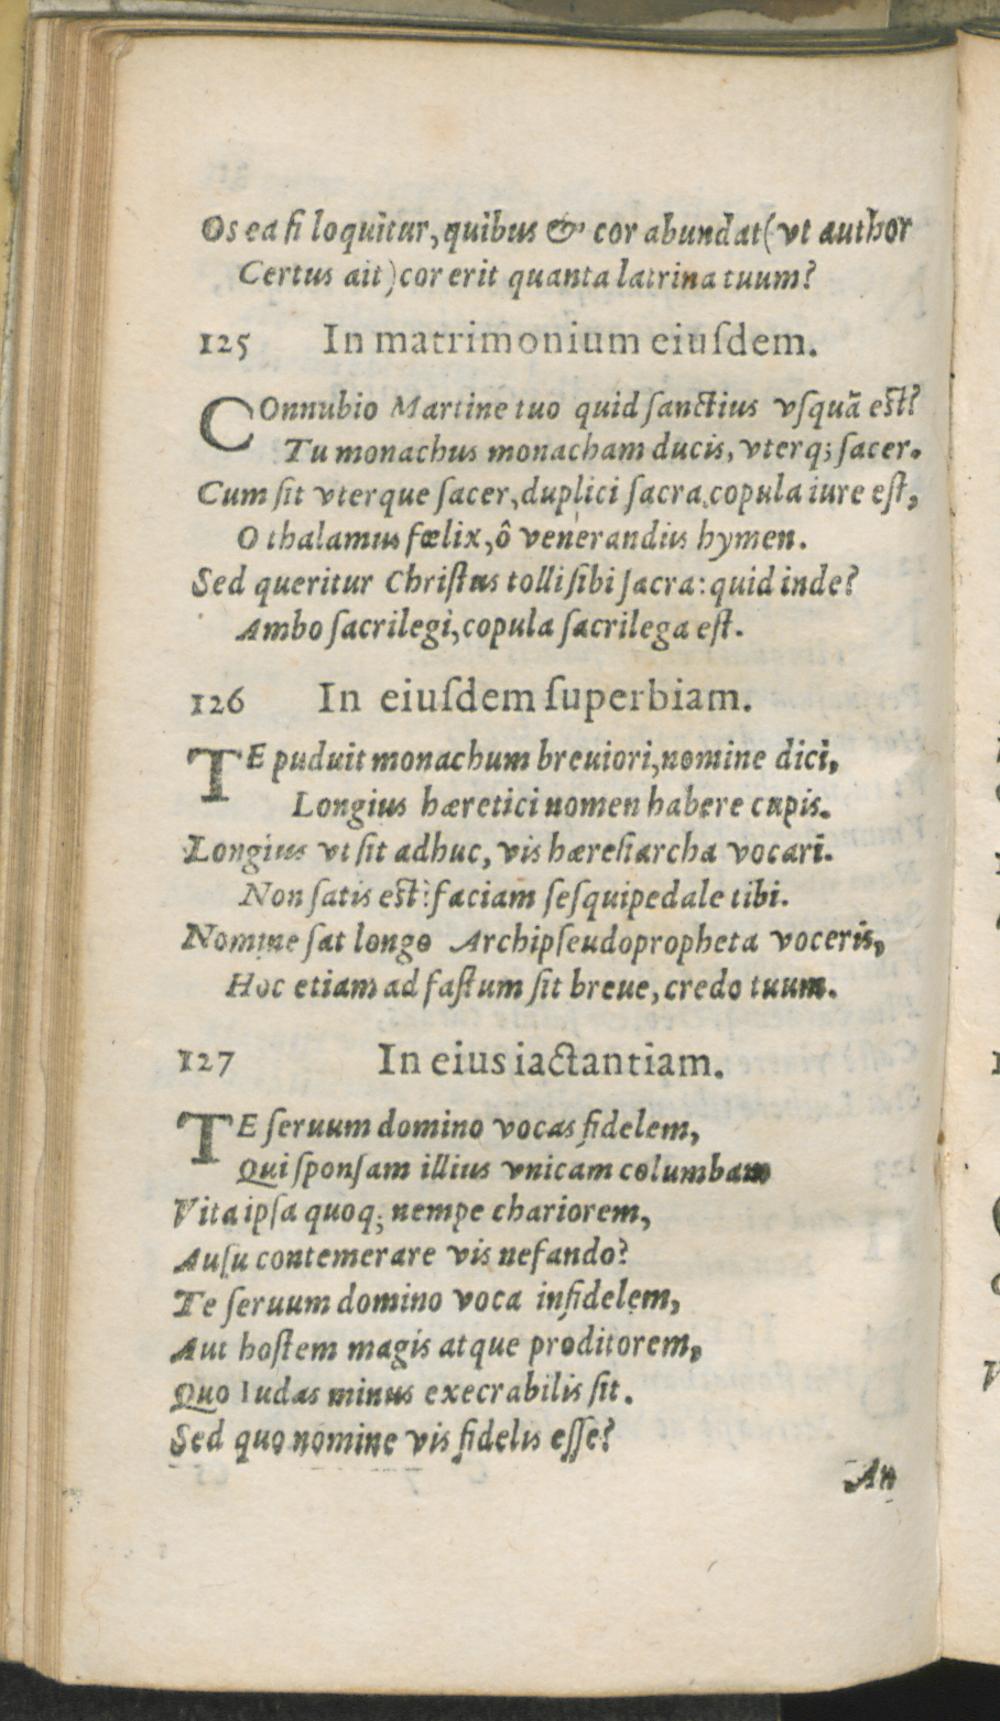 Os ea ſi loquitur, quibus & cor abundat (vt author
Certus ait) cor erit quanta latrina tuum?
125 In matrimonium eiuſdem.
COnnubio Martine tuo quid ſanctius vſquã est?
Tu monachus monacham ducis, vterq; ſacer.
Cum ſit vterque ſacer, duplici ſacra copula iure eſt,
O thalamus fœlix, ô venerandus hymen.
Sed queritur Chriſtus tolli ſibi ſacra: quid inde?
Ambo ſacrilegi, copula ſacrilega eſt.
126 In eiuſdem ſuperbiam.
TE puduit monachum breuiori, nomine dici,
Longius hæretici nomen habere cupis.
Longius vt ſit adhuc, vis hæreſiarcha vocari.
Non ſatis est: faciam ſeſquipedale tibi.
Nomine ſat longo Archipſeudopropheta voceris,
Hoc etiam ad faſtum ſit breue, credo tuum.
127 In eius iactantiam.
TE ſeruum domino vocas fidelem,
Qui ſponſam illius vnicam columbam
Vita ipſa quoq; nempe chariorem,
Auſu contemerare vis nefando?
Te ſeruum domino voca infidelem,
Aut hoſtem magis atque proditorem,
Quo Iudas minus execrabilis ſit.
Sed quo nomine vis fidelis eſſe?
An